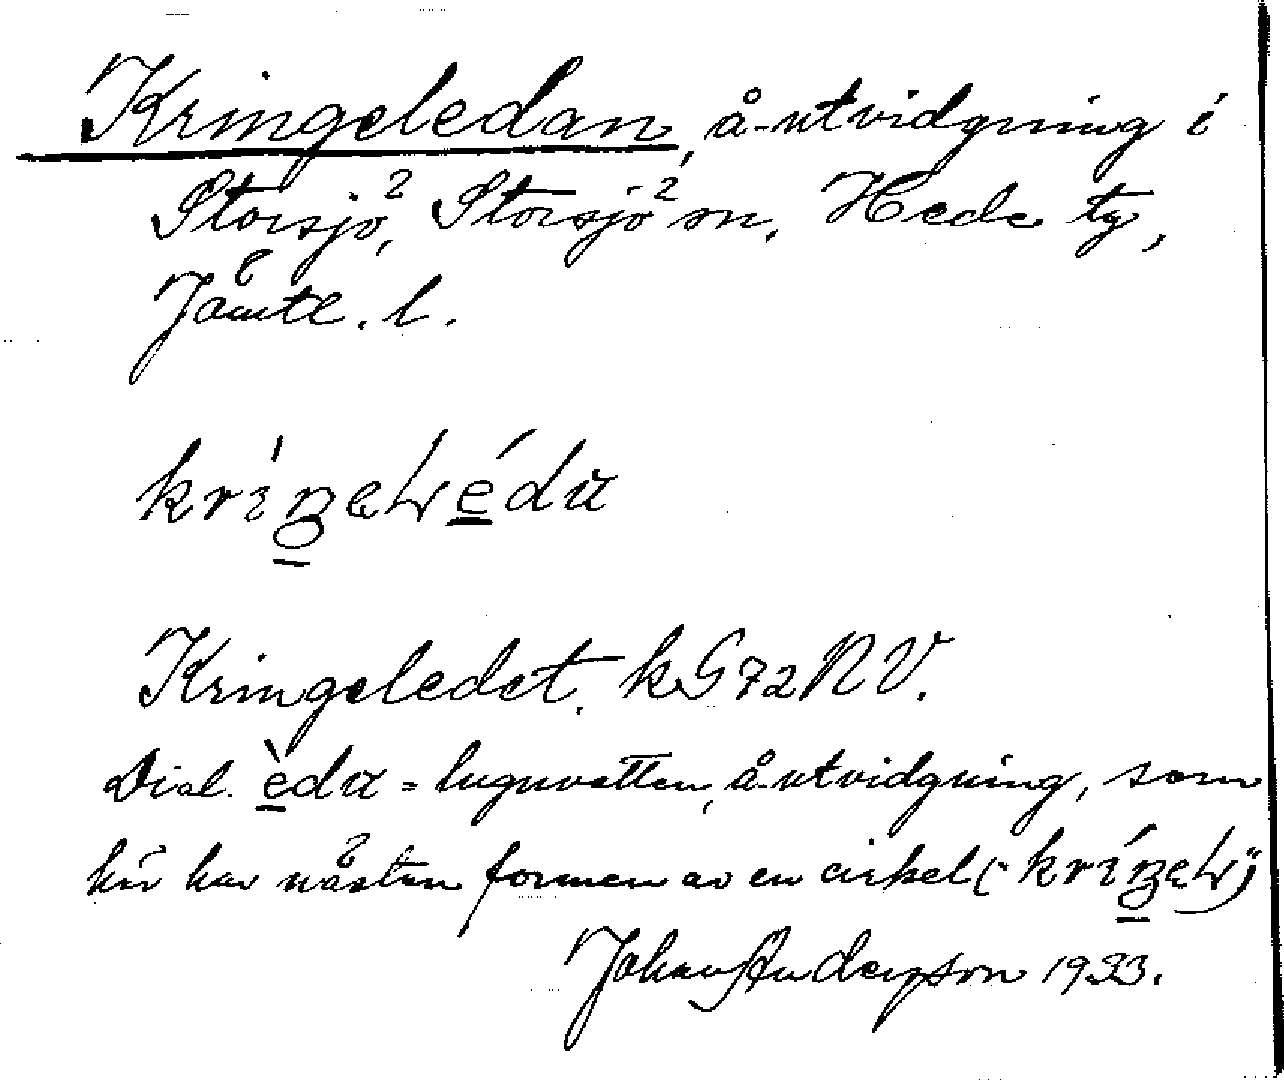 Kringeledan, å-utvidgning i
Storsjö, Storsjö sn, Hede tg,
Jämtl. l.
Kringeledet. kG72NV.
Dial. = lugnvatten, å-utvidgning, som
här har nästan formen av en cirkel (-
Johan Anderson 1933.